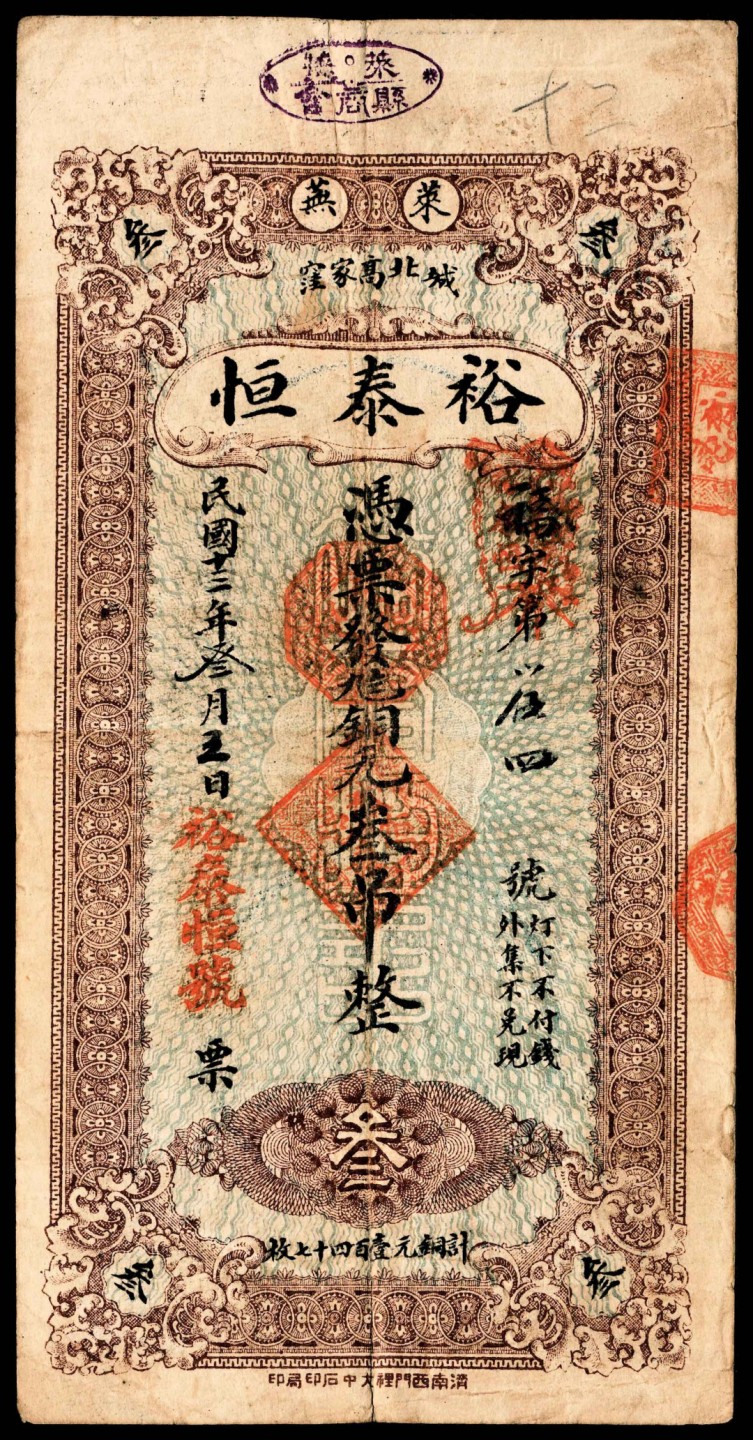 萊蕪
縣商會
十二
萊蕪
叄
叄
城北高家窪
裕泰恒
福字第 伍四號
灯下不付錢
外集不兌現
憑票發兌銅元叁吊整
民國十二年叄月五日
裕泰恒號
票
叁
計銅元壹百四十七枚
叄
叄
濟南西門裡大中石印局印